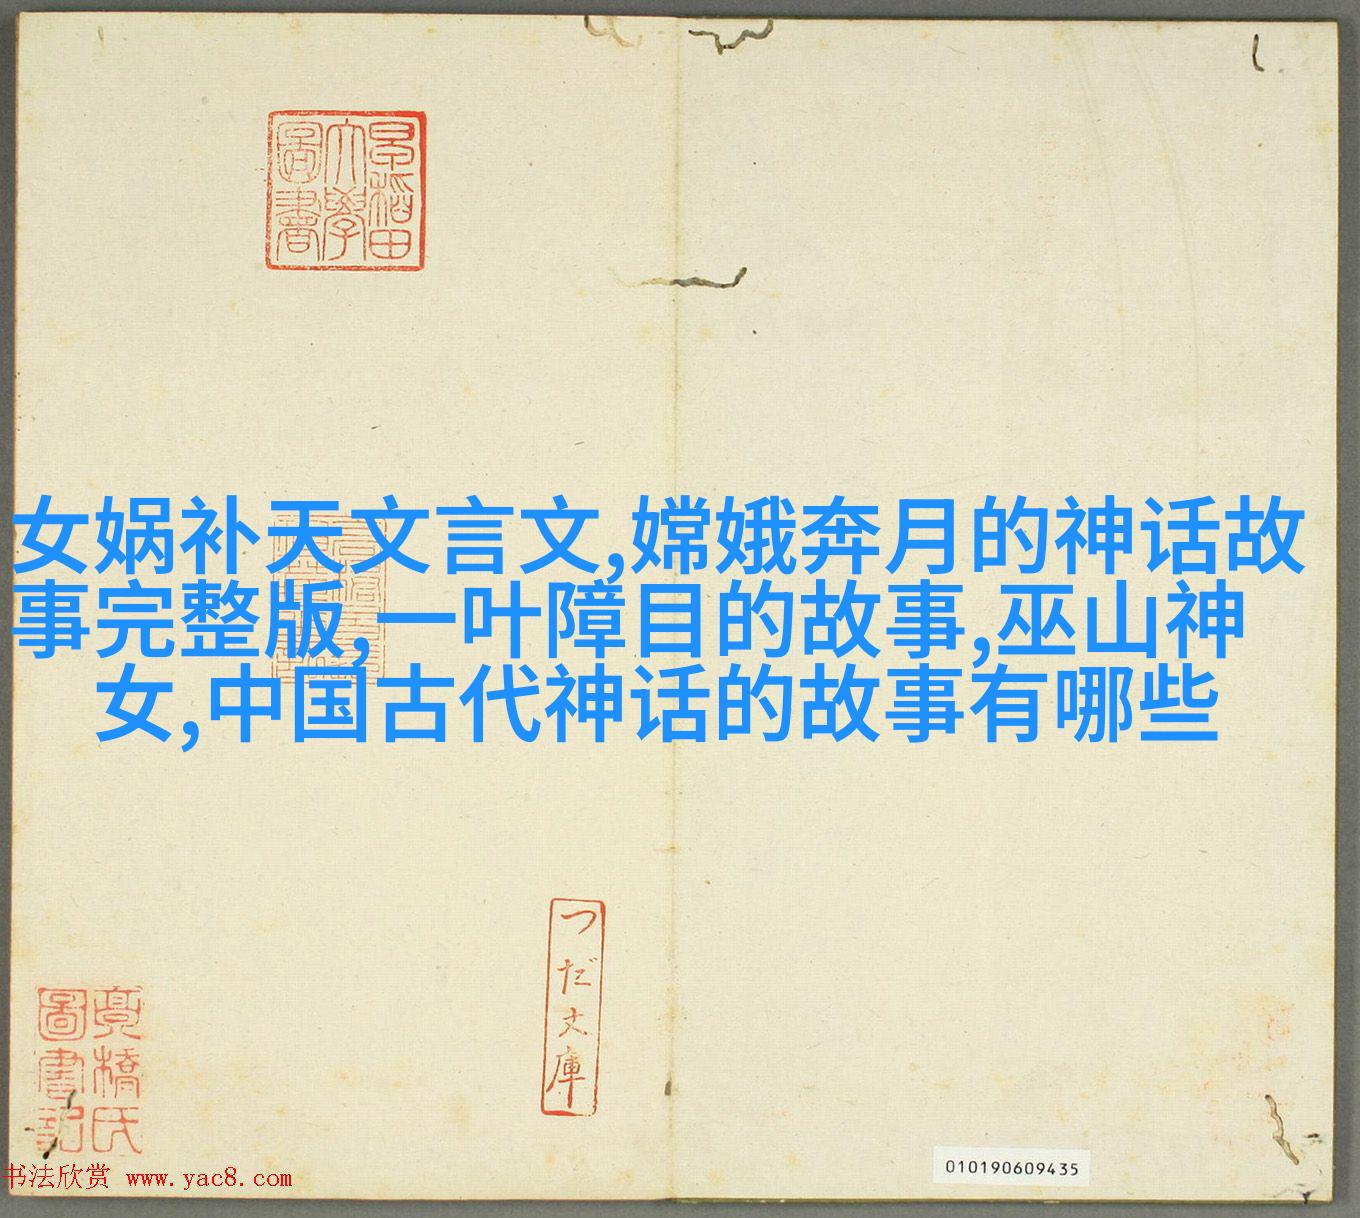 早稲田
大學
圖書
女娲补天文言文,嫦娥奔月的神话故
事完整版,一叶障目的故事,巫山神
女,中国古代神话的故事有哪些
つだ文庫
橋氏
圖書記
书法欣赏 www.yac8.com
010190609435